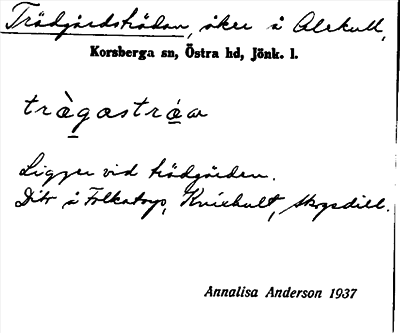 Trädgårdsträdan, åker å Alekull,
Korsberga sn, Östra hd, Jönk. l.
tràgastráa
Ligger vid trädgården.
Dito å Folkatorp, Knixhult, Skogsdill.
Annalisa Anderson 1937